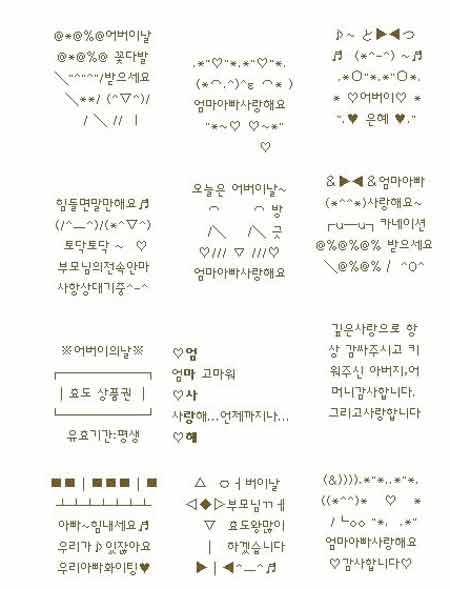 @*@%@어버이날
@*@%@ 꽃다발
＼"^"^"/받으세요
＼**/ (^▽^)/
/ ＼ // ｜
.*"♡"*.*"♡"*.
(*⌒.^)^ε ⌒* )
엄마아빠사랑해요
"*~♡ ♡~*"
♡
♪~ と▶◀つ
♬ (*^-^) ~♬
.*O"*.*"O*.
* ♡어버이♡ *
".♥ 은혜 ♥."
힘들면말만해요♬
(/^__^)/(*^▽^)
토닥토닥 ~ ♡
부모님의전속안마
사항상대기중^-^
오늘은 어버이날~
⌒ ⌒ 방
/＼ /＼ 긋
♡/// ▽ ///♡
엄마아빠사랑해요
&▶◀&엄마아빠
(*^^*)사랑해요~
┌u─u┐카네이션
@%@%@% 받으세요
＼@%@% / ^O^
※어버이의날※
┏━━━━━━┓
｜효도 상품권 ｜
┗━━━━━━┛
유효기간:평생
♡엄
엄마 고마워
♡사
사랑해...언제까지나...
♡해
깊은사랑으로 항
상 감싸주시고 키
워주신 아버지,어
머니감사합니다.
그리고사랑합니다
■■｜■■■｜■
┻┻┻┻┻┻┻
아빠~힘내세요♬
우리가♪있잖아요
우리아빠화이팅♥
△ ㅇㅓ버이날
◁◆▷부모님ㄲㅔ
▽ 효도왕많이
｜ 하겠습니다
▶｜◀^__^♬
(&)))).*"*..*"*.
((*^^)* ♡ *
/┗◇◇ "*. .*"
엄마아빠사랑해요
♡감사합니다♡